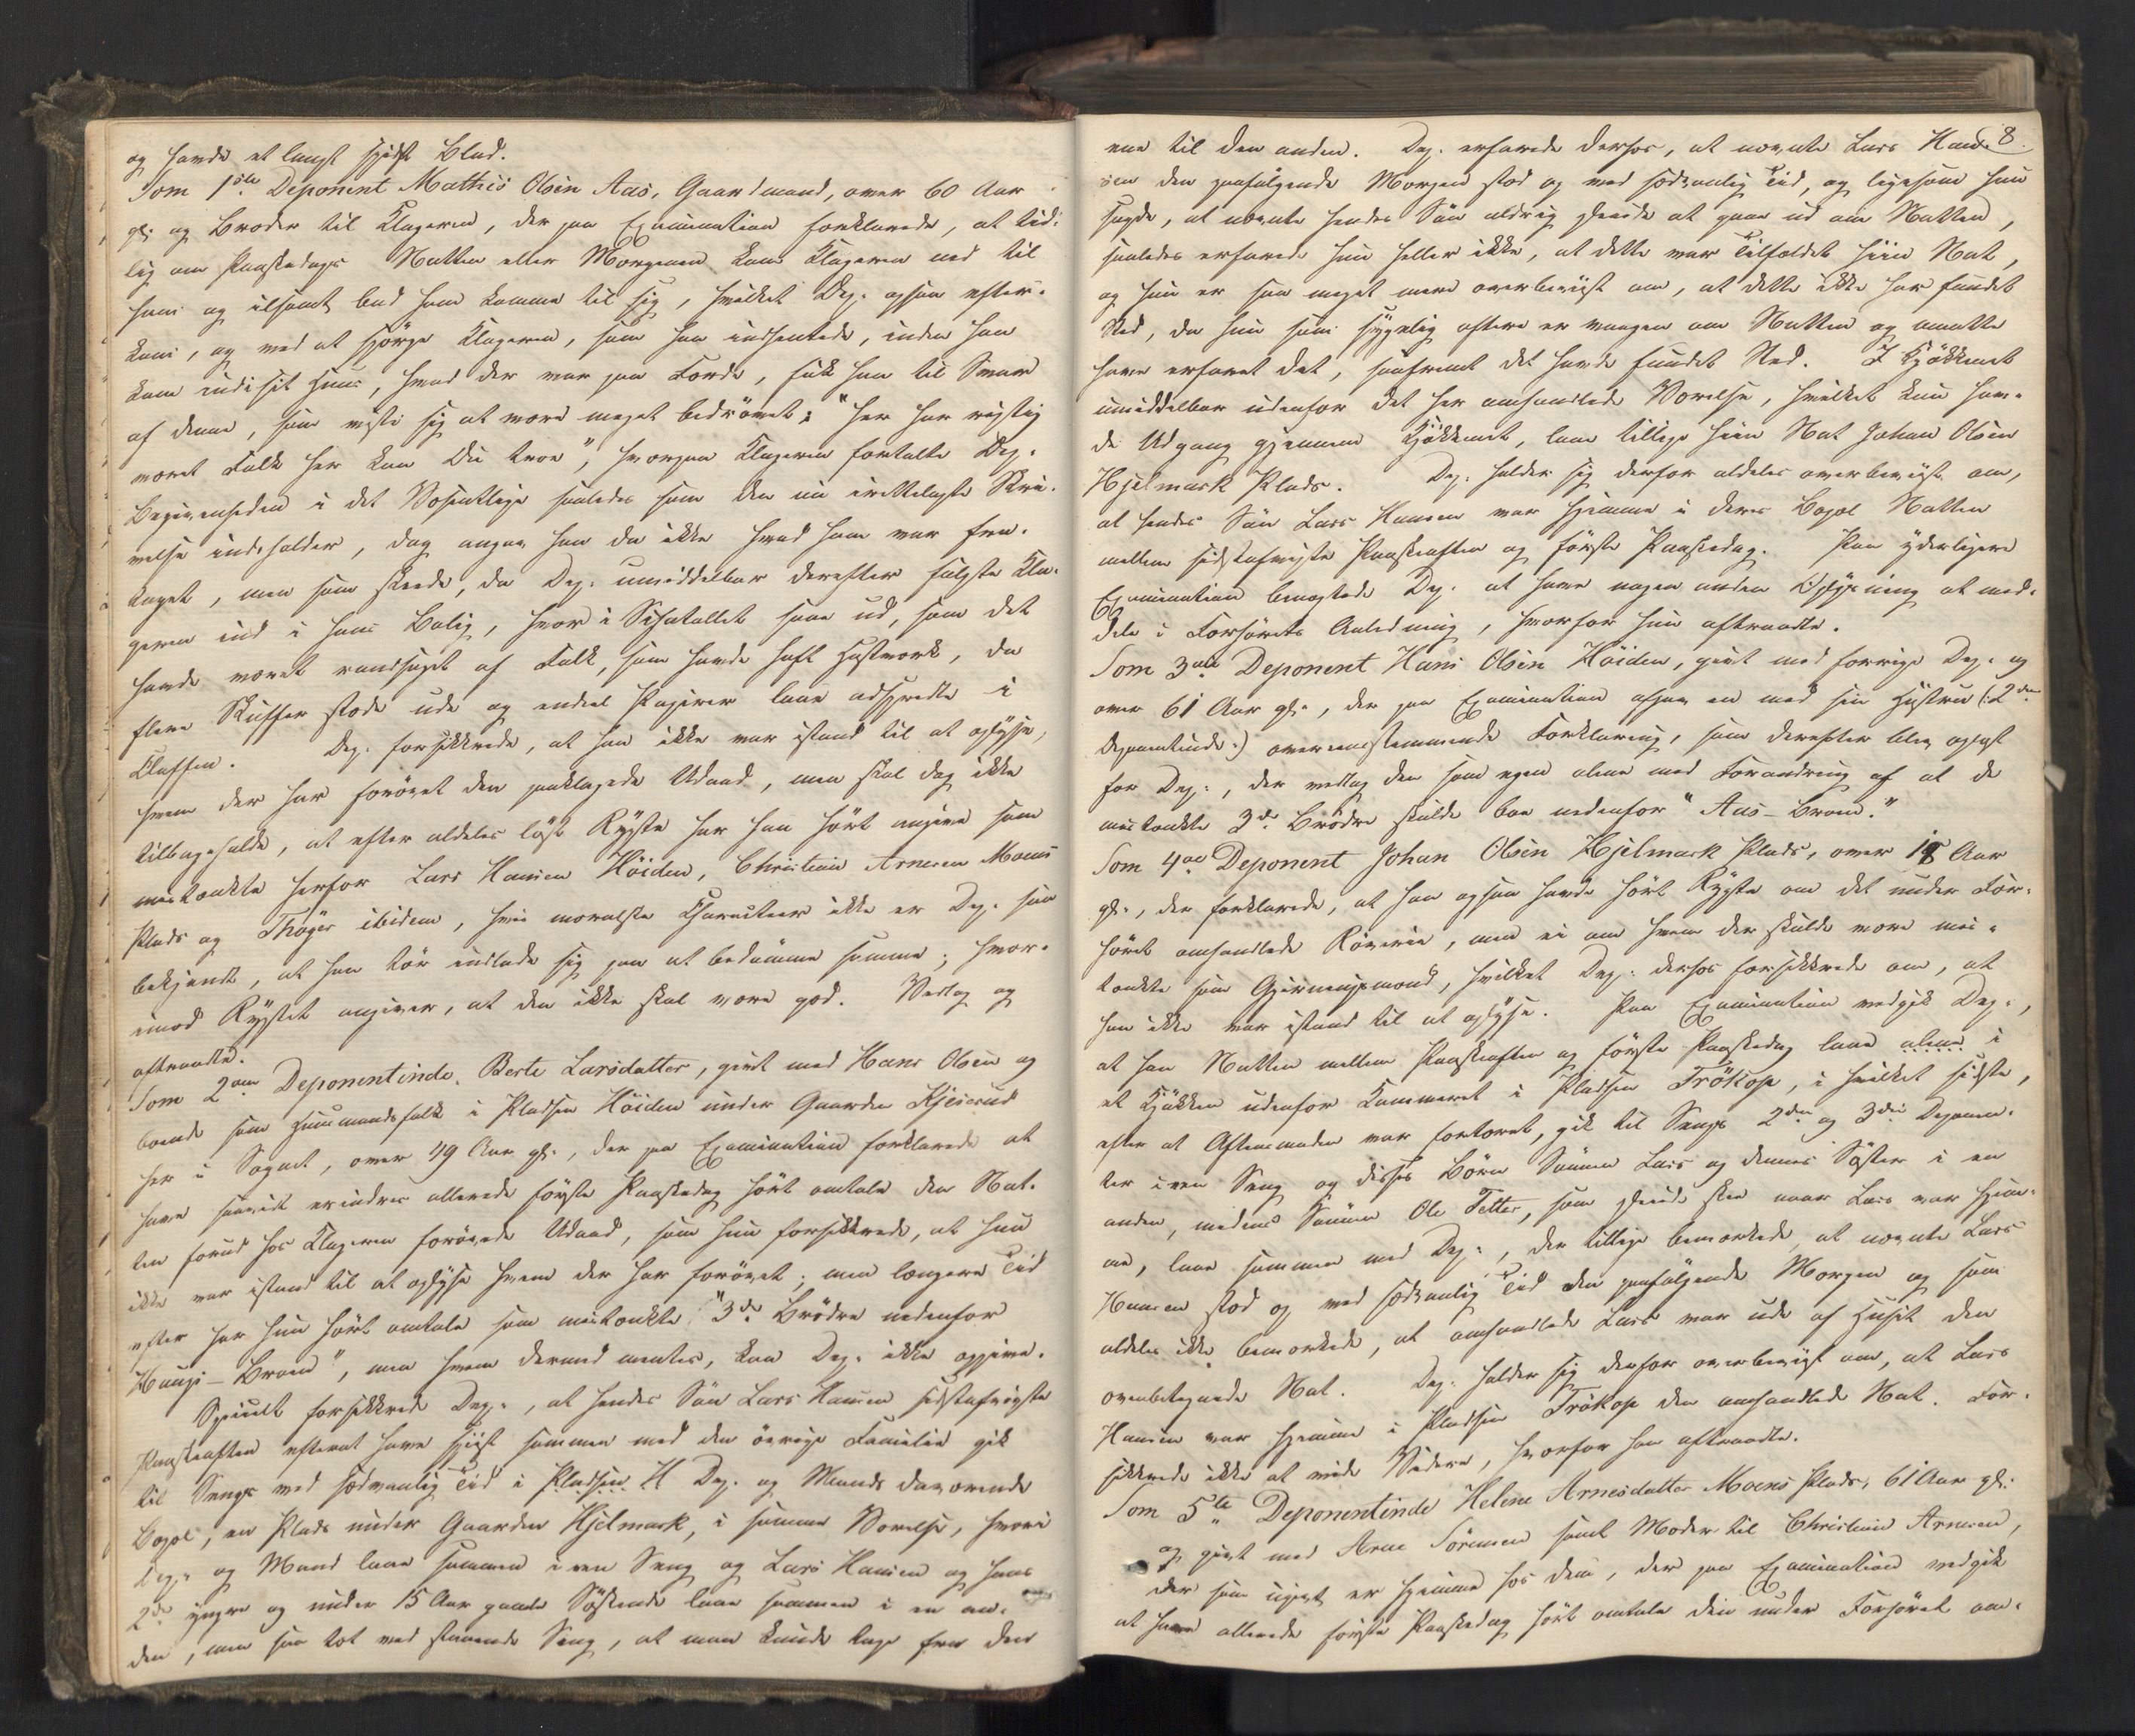 og havde et langt spidst Blad.
Som 1ste Deponent Mathis Olsen Aas, Gaardmand, over 60 Aar
gl. og Broder til Klageren, der paa Examination forklarede, at tid-
lig om Paaskedags Natten eller Morgenen kom Klageren ned til
ham og ilsomt bad ham komme til sig, hvilket Dep. ogsaa efter-
kom, og ved at spörge Klageren, som han indhentede, inden han
kom ind i sit Huus, hvad der var paa Færde, fik han til Svar
af denne, som viste sig at være meget bedrövet: "her har rigtig
været Folk her kan Du troe", hvorpaa Klageren fortalte Dep.
Begivenheden i det Væsentlige saaledes som den nu irettelagte Skri-
velse indeholder, dog angav han da ikke hvad ham var fra-
taget, men som skeede, da Dep. umiddelbar derefter fulgte Kla-
geren ind i hans Bolig, hvor i saa ud, som det
havde været randsaget af Folk, som havde haft Hastværk, da
flere Skuffer stode ude og endeel Papirer laae adspredte i
Klaffen. Dep. forsikkrede, at han ikke var istand til at oplyse,
hvem der har forövet den paaklagede Udaad, men skal dog ikke
tilbageholde, at efter aldeles löst Rygte har han hört angive som
mistænkte herfor Lars Hansen Höiden, Christian Arnesen Moens
Plads og Thöger ibidem, hvis moralske Characteer ikke er Dep. saa
bekjendt, at han tör indlade sig paa at bedömme samme; hvor-
imod Rygtet angiver, at den ikke skal være god. Vedtog og
aftraadte.
Som 2den Deponentinde, Berte Larsdatter, givt med Hans Olsen og
boende som Huusmandsfolk i Pladsen Höiden under Gaarden Kjeserud
her i Sognet, over 49 Aar gl., der paa Examination forklarede at
have saavidt erindres allerede förste Paaskedag hört omtale den Nat-
ten forud hos Klageren forövede Udaad, som hun forsikkrede, at hun
ikke var istand til at oplyse hvem der har forövet; men længere Tid
efter har hun hört omtale som mistænkte "3de Brödre nedenfor
Haugs-Broen", men hvem dermed mentes, kan Dep. ikke opgive.
Specielt forsikkrede Dep., at hendes Sön Lars Hansen sidstafvigte
Paaskeaften efterat have spiist sammen med den övrige Familie gik
til Sengs ved sædvanlig Tid i Pladsen H Dep. og Mands daværende
Bopæl, en Plads under Gaarden Hjelmark, i samme Værelse, hvori
Dep. og Mand laae sammen i een Seng og Lars Hansen og hans
2de yngre og under 15 Aar gamle Söskende laae sammen i en an-
den, men saa tæt ved staaende Seng, at man kunde tage fra den
8.
ene til den anden. Dep. erfarede derhos, at nævnte Lars Han-
sen den paafölgende Morgen stod op ved sædvanlig Tid, og ligesom hun
sagde, at nævnte hendes Sön aldrig pleiede at gaae ud om Natten,
saaledes erfarede hun heller ikke, at dette var Tilfældet hiin Nat,
og hun er saa meget mere overbeviist om, at dette ikke har fundet
Sted, da hun som sygelig oftere er vaagen om Natten og maatte
have erfaret det, saafremt det havde fundet Sted. I Kjökkenet
umiddelbar udenfor det her omhandlede Værelse, hvilket kun hav-
de Udgang gjennem Kjökkenet, laae tillige hiin Nat Johan Olsen
Hjelmark Plads. Dep. holder sig derfor aldeles overbeviist om,
at hendes Sön Lars Hansen var hjemme i deres Bopæl Natten
mellem sidstafvigte Paaskeaften og förste Paaskedag. Paa yderligere
Examination benægtede Dep. at have nogen anden Oplysning at med-
dele i Forhörets Anledning, hvorfor hun aftraadte.
Som 3die Deponent Hans Olsen Höiden, givt med forrige Dep. og
over 61 Aar gl., der paa Examination afgav en med sin Hustru (:2den
Deponentinde:) overeenstemmende Forklaring, som derefter blev oplæst
for Dep., der vedtog den som egen alene med Forandring af at de
mistænkte 3de Brödre skulde boe nedenfor "Aas-Broen."
Som 4de Deponent Johan Olsen Hjelmark Plads, over 18 Aar
gl., der forklarede, at han ogsaa havde hört Rygte om det under For-
höret omhandlede Röverie, men ei om hvem der skulde være mis-
tænkte som Gjerningsmænd, hvilket Dep. derhos forsikkrede om, at
han ikke var istand til at oplyse. Paa Examination vedgik Dep.,
at han Natten mellem Paaskeaften og förste Paaskedag laae alene i
et Kjökken udenfor Kammeret i Pladsen Trökop, i hvilket sidste,
efter at Aftensmaden var fortæret, gik til Sengs 2den og 3die Deponen-
ter i een Seng og disses Börn Sönnen Lars og dennes Söster i en
anden, medens Sönnen Ole Tetter, som pleiede skee naar Lars var hjem-
me, laae sammen med Dep., der tillige bemærkede, at nævnte Lars
Hansen stod op ved sædvanlig Tid den paafölgende Morgen og som
aldeles ikke bemærkede, at omhandlede Lars var ude af Huset den
ovenbetegnede Nat. Dep. holder sig derfor overbeviist om, at Lars
Hansen var hjemme i Pladsen Trökop den omhandlede Nat. For-
sikkrede ikke at vide Videre, hvorfor han aftraadte.
Som 5te Deponentinde Helene Arnesdatter Moens Plads, 61 Aar gl.
og givt med Arne Sörensen samt Moder til Christian Arnesen,
der som ugivt er hjemme hos dem, der paa Examination vedgik
at have allerede förste Paaskedag hört omtale den under Forhöret om-